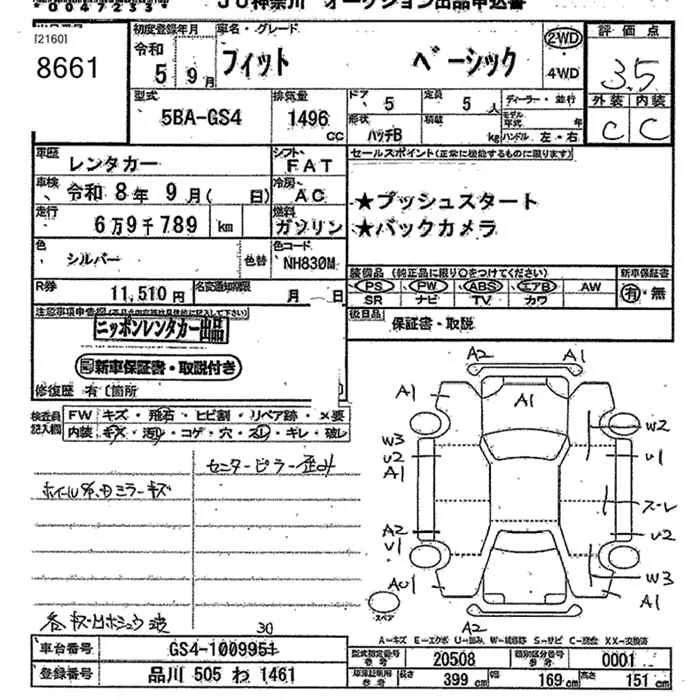 0047233
JU神奈川 オークション出品申込書
[2160]
8661
初度登録年月
令和
5 9月
車名・グレード
フィット ベーシック
2WD
・
4WD
評価点
3.5
外装 内装
C C
型式
5BA-GS4
排気量
1496
CC
ドア
5
定員
5 人
形状
ハッチB
積載
kg
ディーラー・並行
モデル年式 年
ハンドル 左・右
車歴
レンタカー
シフト
FAT
車検
令和 8年 9月( 日)
冷房
AC
走行
6万9千789 km
燃料
ガソリン
色
シルバー
色替
色コード
NH830M
R券
11,510 円
名変通知期限
月 日
セールスポイント(正常に機能するものに限ります)
★プッシュスタート
★バックカメラ
装備品 (純正品に限り○をつけてください)
PS PW ABS エアB AW
SR ナビ TV カワ
新車保証書
有・無
後日品
保証書・取説
注意事項申告欄
ニッポンレンタカー出品
新車保証書・取説付き
修復歴 有〔箇所
検査員記入欄
FW キズ・飛石・ヒビ割・リペア跡・×要
内装 キズ・汚レ・コゲ・穴・スレ・キレ・破レ
センターピラー歪み
30
A2 A1
A1 A1
W2
W3
U2 U1
A1
スーレ
A2 U2
U1
W3
A1
A2
スペア
A-キズ E-エクボ U-凹み W-補修跡 S-サビ C-腐食 XX-交換済
車台番号
GS4-1009951
登録番号
品川 505 わ 1461
型式指定番号
参考
20508
類別区分番号
参考
0001
車庫証明用
参考
長さ
399 cm
幅
169 cm
高さ
151 cm